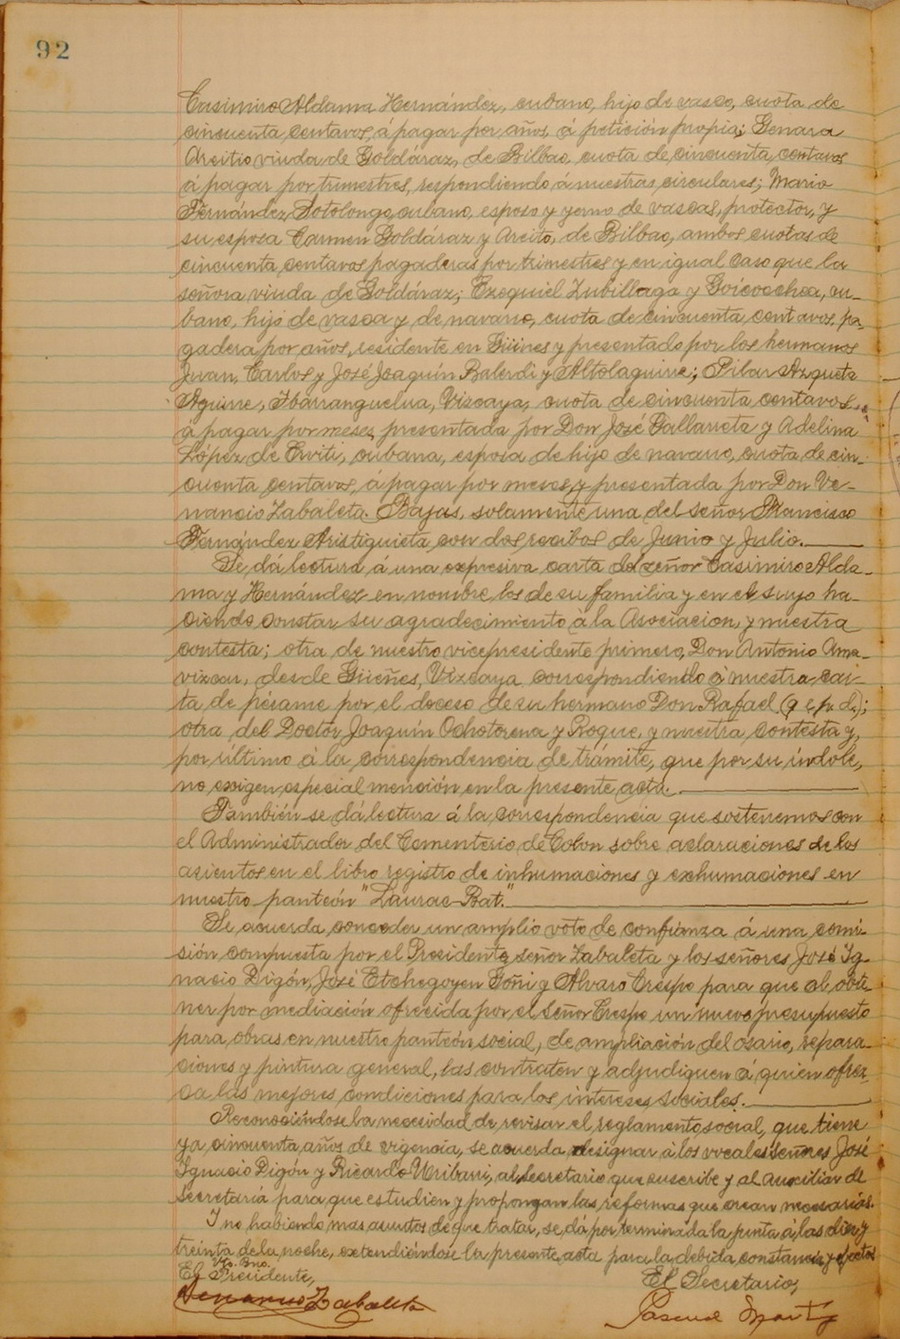 92
Casimiro Aldama Hernández, cubano, hijo de vasco, cuota de
cincuenta centavos, á pagar por años, á petición propia; Genara
Areitio viuda de Goldáraz, de Bilbao, cuota de cincuenta centavos
á pagar por trimestres, respondiendo á nuestras circulares; Mario
Fernández Sotolongo, cubano, esposo y yerno de vascas, protector, y
su esposa Carmen Goldáraz y Areito, de Bilbao, ambos cuotas de
cincuenta centavos pagaderas por trimestres y en igual caso que la
señora viuda de Goldáraz; Ezequiel Zubillaga y Goicoechea, cu-
bano, hijo de vasca y de navarro, cuota de cincuenta centavos, pa-
gadera por años, residente en Güines y presentado por los hermanos
Juan, Carlos y José Joaquín Balerdi y Altolaguirre; Pilar Azqueta
Aguirre, Ibarranguelua, Vizcaya, cuota de cincuenta centavos
á pagar por meses, presentada por Don José Gallarreta y Adelina
López de Erviti, cubana, esposa de hijo de navarro, cuota de cin-
cuenta centavos, á pagar por meses, y presentada por Don Ve-
nancio Zabaleta. Bajas, solamente una del señor Francisco
Fernández Aristiguieta con dos recibos de Junio y Julio.
Se dá lectura á una expresiva carta del señor Casimiro Alda-
ma y Hernández en nombre los de su familia y en el suyo ha-
ciendo constar su agradecimiento á la Asociacion, y nuestra
contesta; otra de nuestro vicepresidente primero, Don Antonio Ama-
vizcar, desde Güeñes, Vizcaya correspondiendo á nuestra car-
ta de pésame por el deceso de su hermano Don Rafael (q e. p. d.);
otra del Doctor Joaquín Ochotorena y Roque, y nuestra contesta y,
por último á la correspondencia de trámite, que por su índole,
no exigen especial mención en la presente acta.
También se dá lectura á la correspondencia que sostenemos con
el Administrador del Cementerio de Colon sobre aclaraciones de los
asientos en el libro registro de inhumaciones y exhumaciones en
nuestro panteón "Laurac Bat."
Se acuerda conceder un amplio voto de confianza á una comi-
sión compuesta por el Presidente señor Zabaleta y los señores José Ig-
nacio Digón, José Etchegoyen Goñi y Alvaro Crespo para que al obte-
ner por mediación ofrecida por el señor Crespo un nuevo presupuesto
para obras en nuestro panteón social, de ampliación del osario, repara-
ciones y pintura general, las contraten y adjudiquen á quien ofrez-
ca las mejores condiciones para los intereses sociales.
Reconociéndose la necesidad de revisar el reglamento social, que tiene
ya cincuenta años de vigencia, se acuerda designar á los vocales señores José
Ignacio Digón y Ricardo Uribarri, al secretario que suscribe y al auxiliar de
secretaría para que estudien y propongan las reformas que crean necesarias.
Y no habiendo mas asuntos de que tratar, se dá por terminada la junta á las diez y
treinta de la noche, extendiéndose la presente acta para la debida constancia y efectos
Vto. Bno.
El Presidente,
El Secretario,
Venancio Zabaleta
Pascual